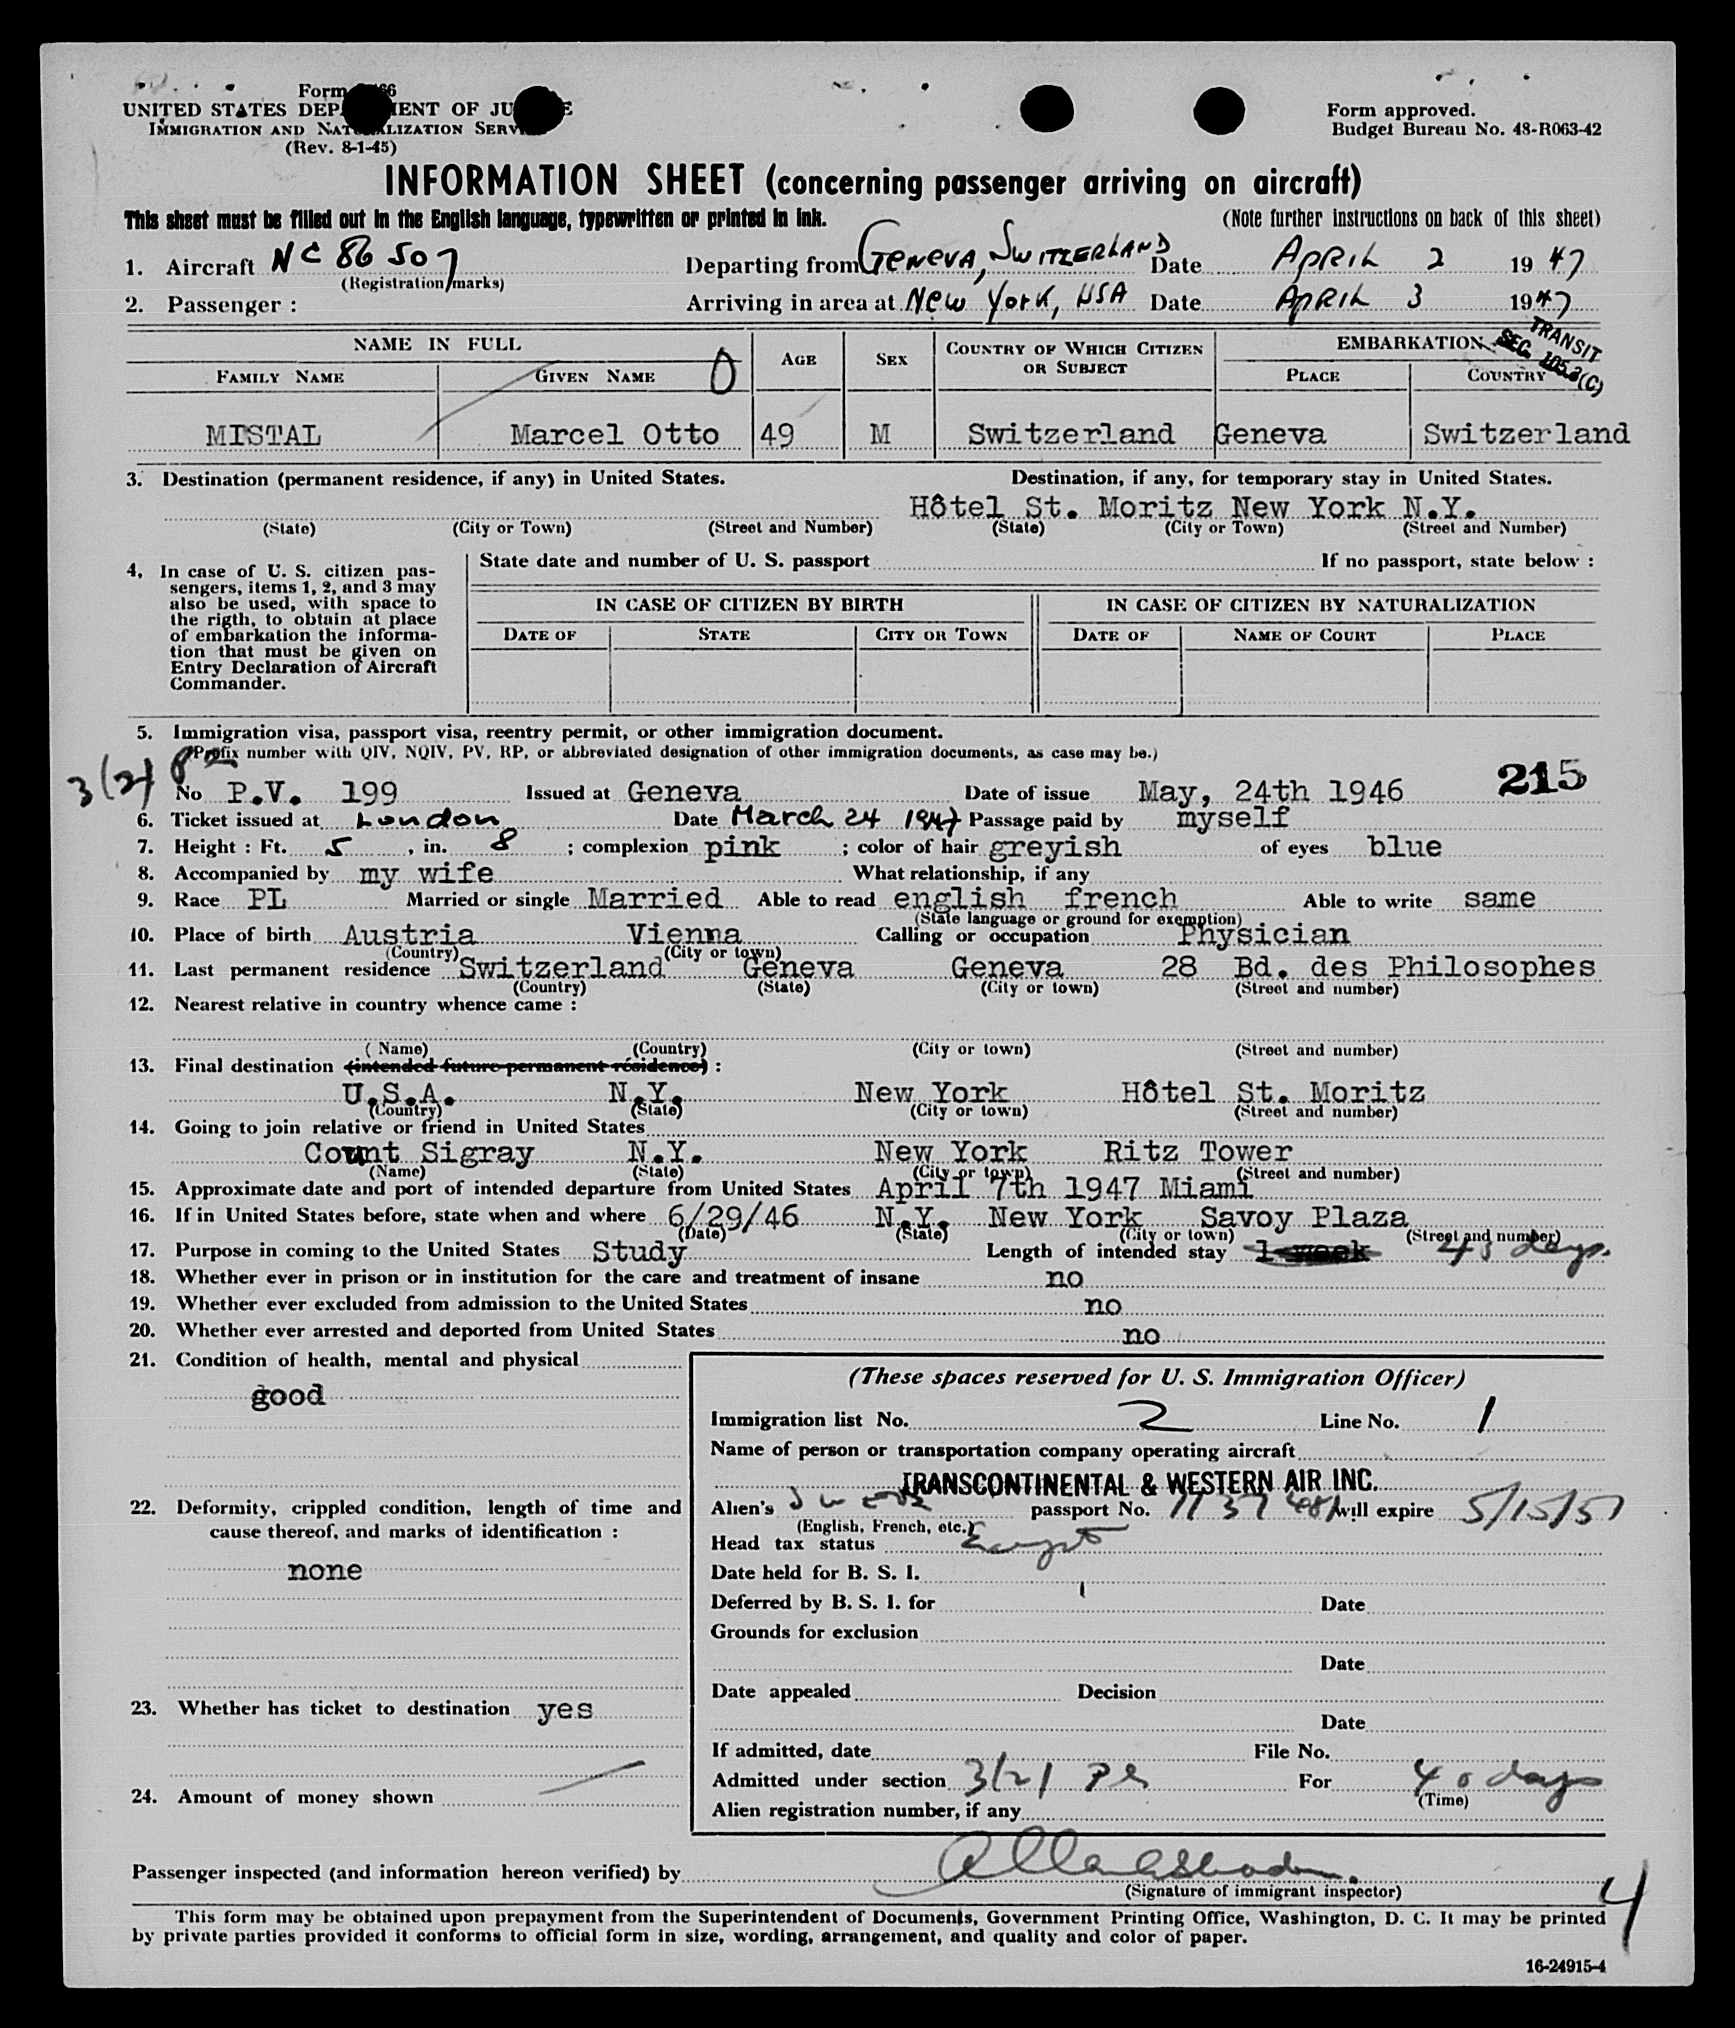 Form
UNITED STATES DEP MENT OF JU E
IMMIGRATION AND NAT LIZATION SERV
(Rev. 8-1-45)
Form approved.
Budget Bureau No. 48-R063-42
INFORMATION SHEET (concerning passenger arriving on aircraft)
This sheet must be filled out in the English language, typewritten or printed in ink. (Note further instructions on back of this sheet)
1. Aircraft NC 86507 Departing from GENEVA, SWITZERLAND Date APRIL 2 1947
(Registration marks)
2. Passenger : Arriving in area at New York, USA Date APRIL 3 1947
TRANSIT
SEC. 105.3(C)
NAME IN FULL AGE SEX COUNTRY OF WHICH CITIZEN OR SUBJECT EMBARKATION
FAMILY NAME GIVEN NAME 0 PLACE COUNTRY
MISTAL Marcel Otto 49 M Switzerland Geneva Switzerland
3. Destination (permanent residence, if any) in United States. Destination, if any, for temporary stay in United States.
Hôtel St. Moritz New York N.Y.
(State) (City or Town) (Street and Number) (State) (City or Town) (Street and Number)
4, In case of U. S. citizen pas-
sengers, items 1, 2, and 3 may
also be used, with space to
the rigth, to obtain at place
of embarkation the informa-
tion that must be given on
Entry Declaration of Aircraft
Commander.
State date and number of U. S. passport If no passport, state below :
IN CASE OF CITIZEN BY BIRTH IN CASE OF CITIZEN BY NATURALIZATION
DATE OF STATE CITY OR TOWN DATE OF NAME OF COURT PLACE
5. Immigration visa, passport visa, reentry permit, or other immigration document.
(Prefix number with QIV, NQIV, PV, RP, or abbreviated designation of other immigration documents, as case may be.)
3(2)
No P.V. 199 Issued at Geneva Date of issue May, 24th 1946 215
6. Ticket issued at London Date March 24 1947 Passage paid by myself
7. Height : Ft. 5 , in. 8 ; complexion pink ; color of hair greyish of eyes blue
8. Accompanied by my wife What relationship, if any
9. Race PL Married or single Married Able to read english french Able to write same
(State language or ground for exemption)
10. Place of birth Austria Vienna Calling or occupation Physician
(Country) (City or town)
11. Last permanent residence Switzerland Geneva Geneva 28 Bd. des Philosophes
(Country) (State) (City or town) (Street and number)
12. Nearest relative in country whence came :
( Name) (Country) (City or town) (Street and number)
13. Final destination (intended future permanent residence) :
U.S.A. N.Y. New York Hôtel St. Moritz
(Country) (State) (City or town) (Street and number)
14. Going to join relative or friend in United States
Count Sigray N.Y. New York Ritz Tower
(Name) (State) (City or town) (Street and number)
15. Approximate date and port of intended departure from United States April 7th 1947 Miami
16. If in United States before, state when and where 6/29/46 N.Y. New York Savoy Plaza
(Date) (State) (City or town) (Street and number)
17. Purpose in coming to the United States Study Length of intended stay 1 week days.
18. Whether ever in prison or in institution for the care and treatment of insane no
19. Whether ever excluded from admission to the United States no
20. Whether ever arrested and deported from United States no
21. Condition of health, mental and physical
good
22. Deformity, crippled condition, length of time and
cause thereof, and marks of identification :
none
23. Whether has ticket to destination yes
24. Amount of money shown
(These spaces reserved for U. S. Immigration Officer)
Immigration list No. 2 Line No. 1
Name of person or transportation company operating aircraft
TRANSCONTINENTAL & WESTERN AIR INC.
Alien's passport No. will expire 5/15/51
(English, French, etc.)
Head tax status
Date held for B. S. I.
Deferred by B. S. I. for Date
Grounds for exclusion
Date
Date appealed Decision
Date
If admitted, date File No.
Admitted under section 3(2) For 40 days
(Time)
Alien registration number, if any
Passenger inspected (and information hereon verified) by
(Signature of immigrant inspector)
4
This form may be obtained upon prepayment from the Superintendent of Documents, Government Printing Office, Washington, D. C. It may be printed
by private parties provided it conforms to official form in size, wording, arrangement, and quality and color of paper.
16-24915-4